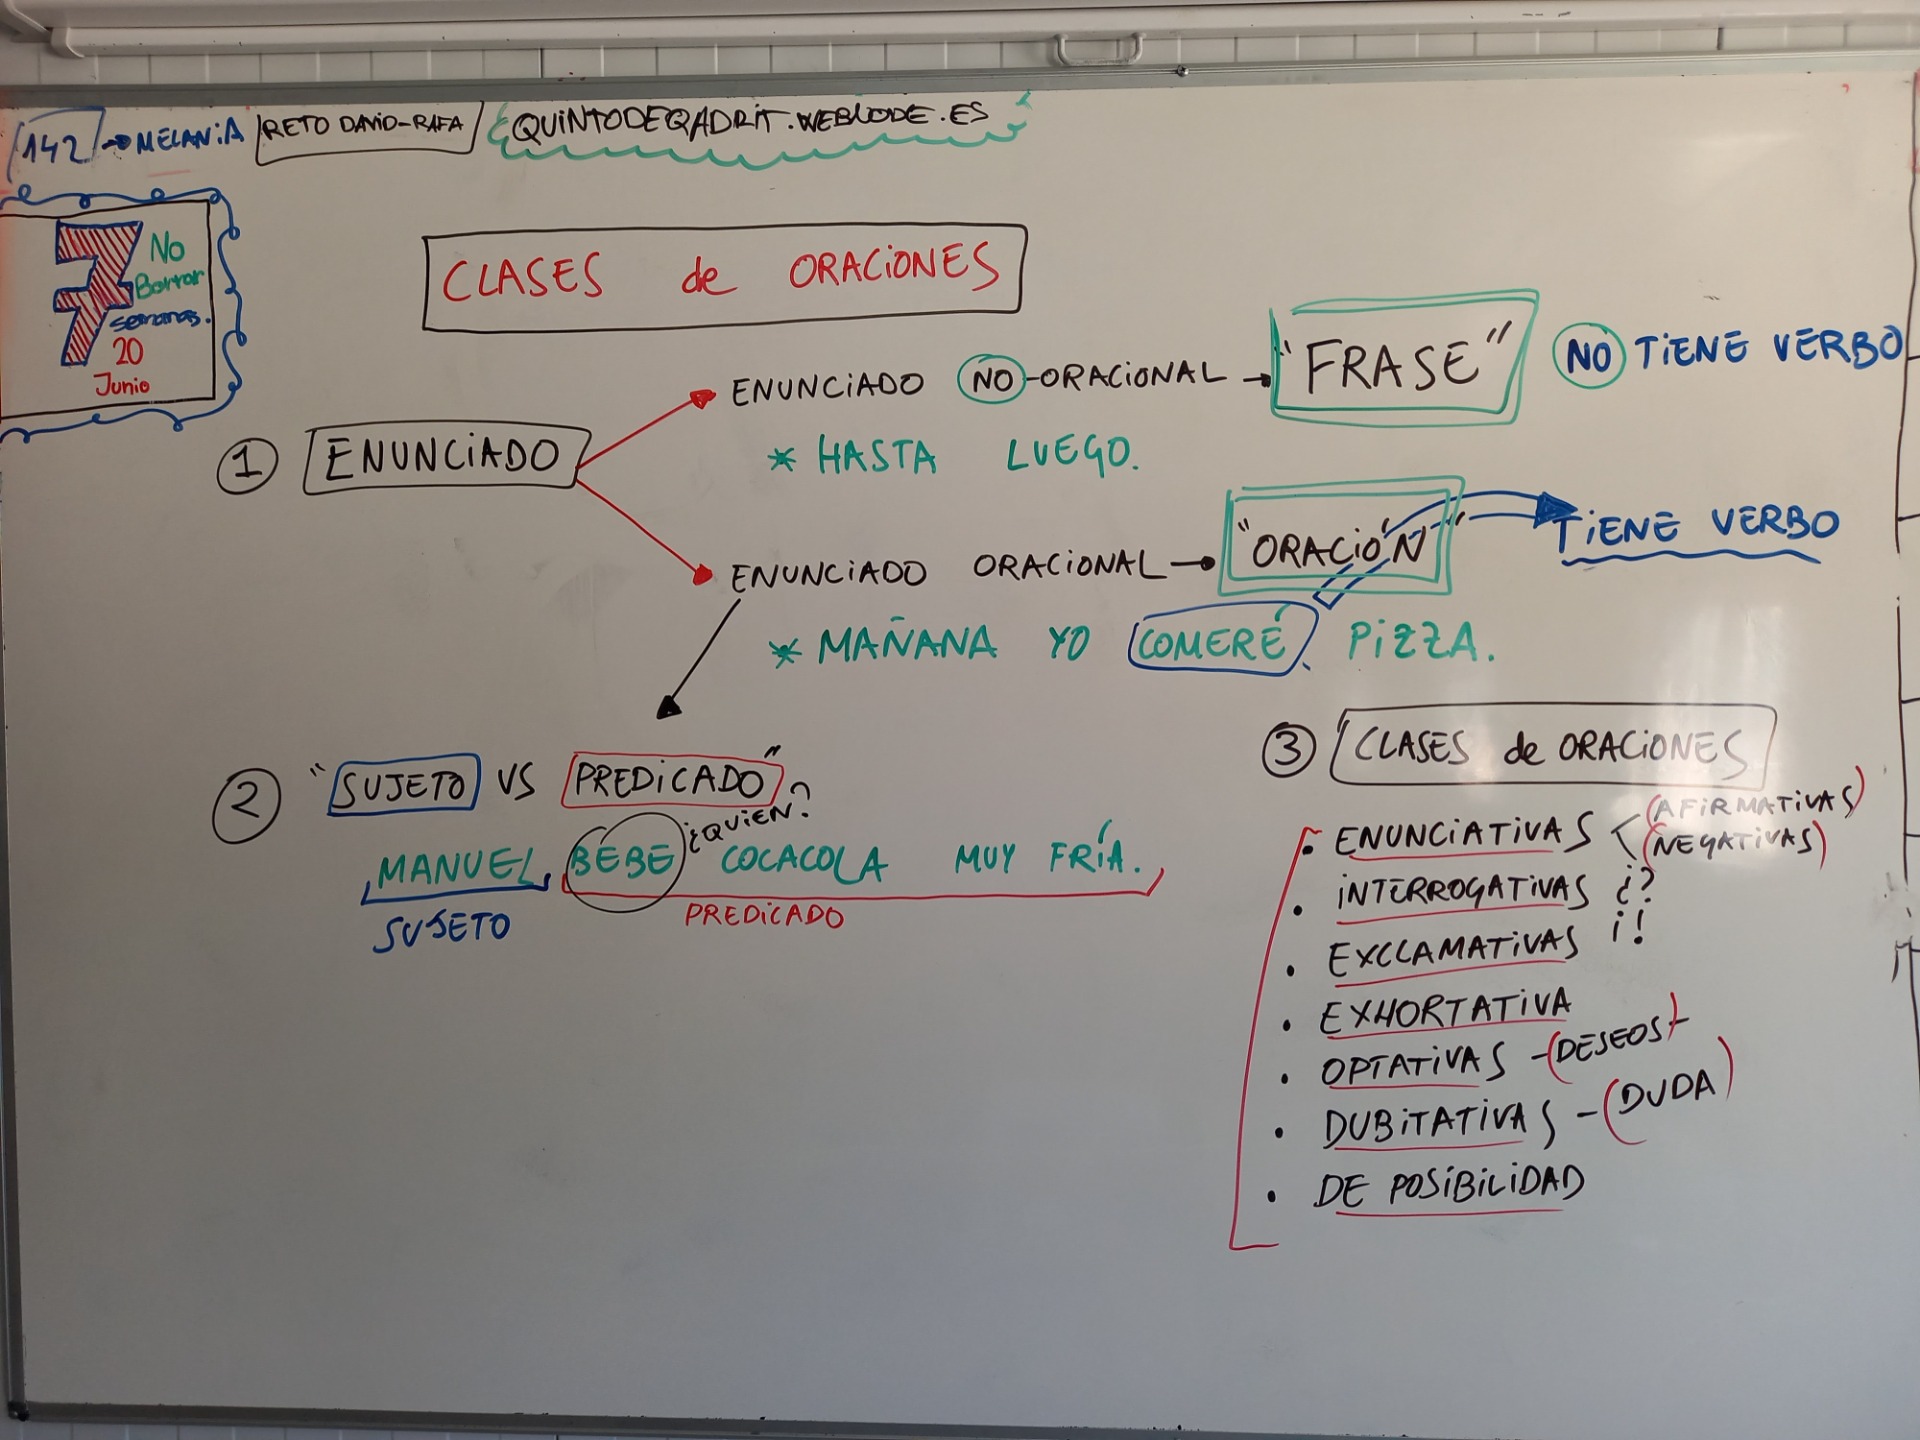 142 → MELANIA RETO DAVID-RAFA QUINTODEQADRIT.WEBNODE.ES
7 No
Borrar
semanas.
20
Junio
CLASES de ORACIONES
ENUNCIADO NO-ORACIONAL → "FRASE" NO TIENE VERBO
1 ENUNCIADO
* HASTA LUEGO.
ENUNCIADO ORACIONAL → "ORACIÓN" TIENE VERBO
* MAÑANA YO COMERÉ PIZZA.
2 "SUJETO VS PREDICADO"
¿QUIEN?
MANUEL BEBE COCACOLA MUY FRÍA.
SUJETO PREDICADO
3 CLASES de ORACIONES
• ENUNCIATIVAS < (AFIRMATIVAS)
(NEGATIVAS)
• INTERROGATIVAS ¿?
• EXCLAMATIVAS ¡!
• EXHORTATIVA
• OPTATIVAS - (DESEOS)-
• DUBITATIVAS - (DUDA)
• DE POSIBILIDAD